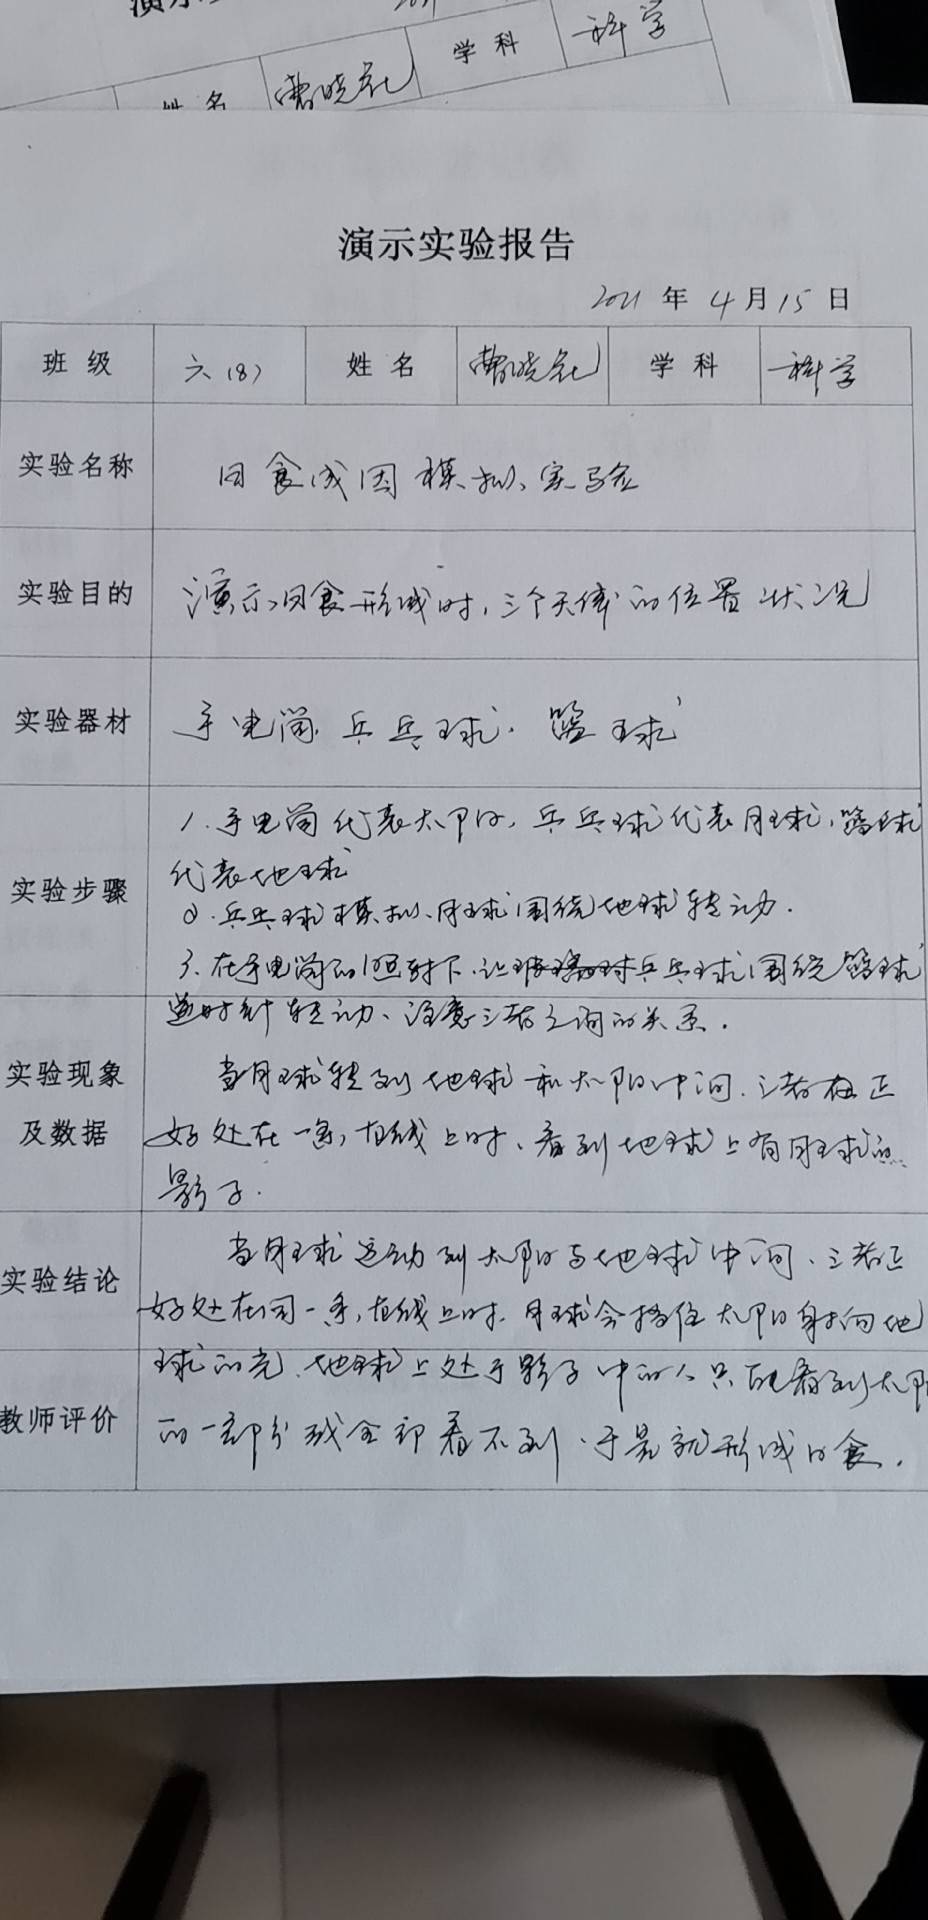 演示
学科 科学
姓名 曹晓
演示实验报告
2021 年 4 月 15 日
班级 六(8) 姓名 曹晓 学科 科学
实验名称 日食成因模拟实验
实验目的 演示日食形成时,三个天体的位置状况
实验器材 手电筒 乒乓球. 篮球
1. 手电筒代表太阳,乒乓球代表月球,篮球
代表地球
实验步骤
2. 乒乓球模拟月球围绕地球转动.
3. 在手电筒的照射下.让乒乓球围绕篮球
逆时针转动、注意三者之间的关系.
实验现象
及数据
当月球转到地球和太阳中间.三者在正
好处在一条直线上时、看到地球上有月球的
影子.
实验结论
当月球运动到太阳与地球中间、三者正
好处在同一条直线上时.月球会挡住太阳射向地
球的光、地球上处于影子中的人只能看到太阳
教师评价
的一部分或全部看不到.于是就形成日食.